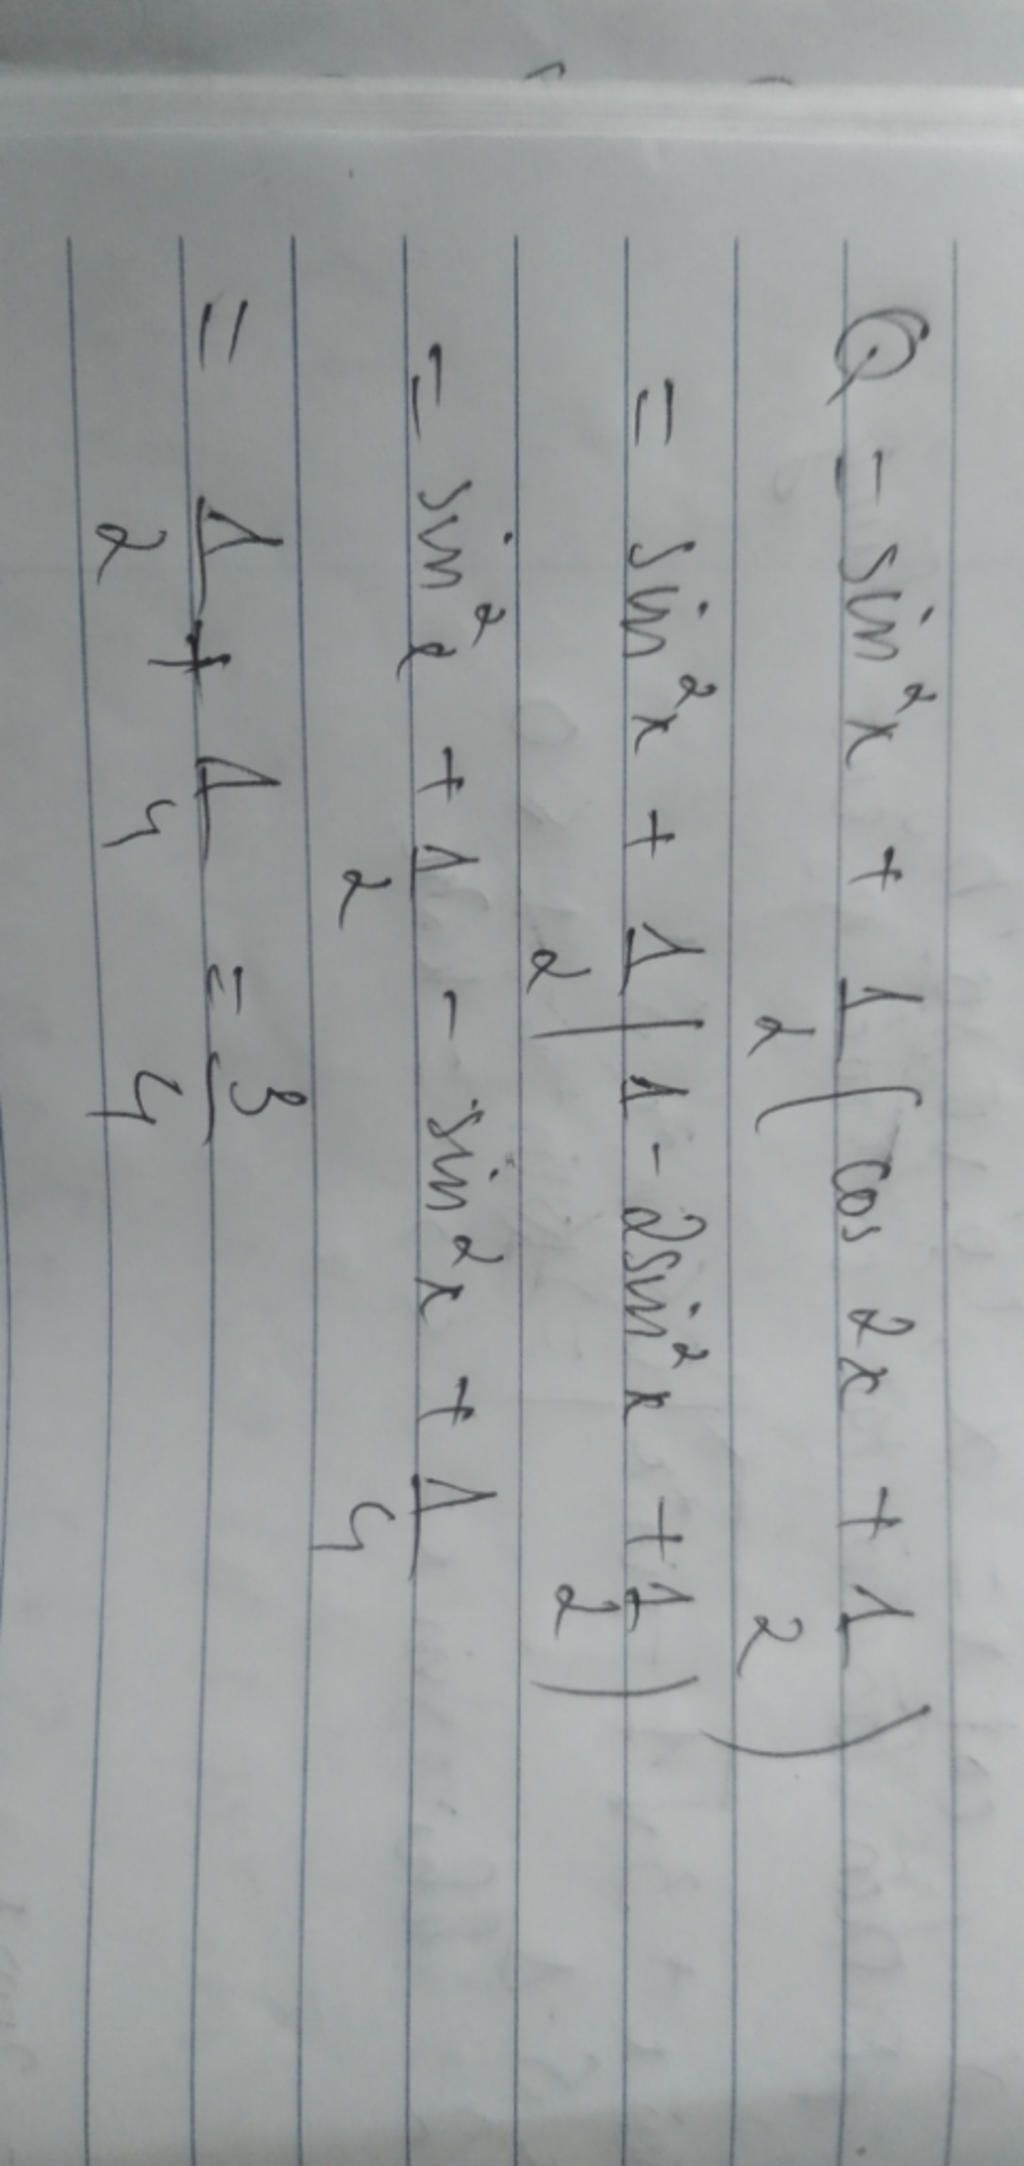 Q = sin²x + 1/2 (cos 2x + 1/2)
= sin²x + 1/2 (1 - 2sin²x + 1/2)
= sin²x + 1/2 - sin²x + 1/4
= 1/2 + 1/4 = 3/4